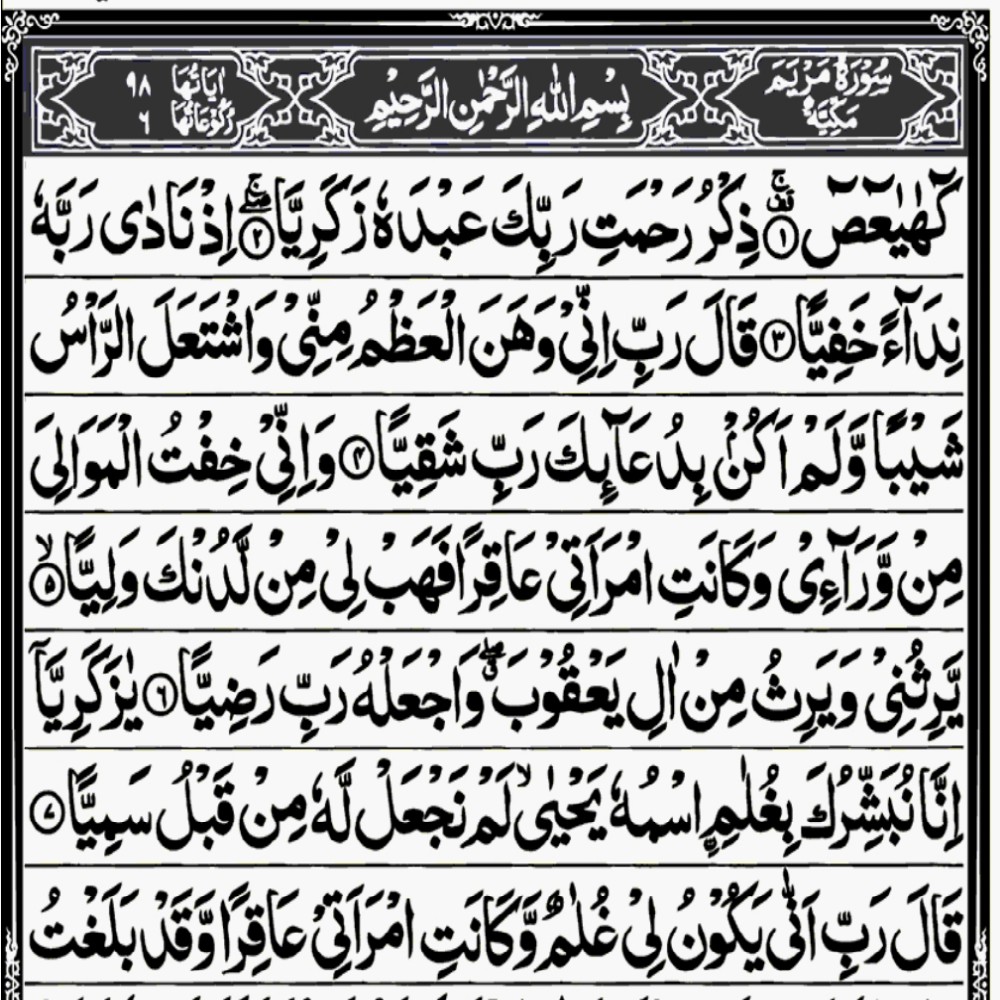 سُوْرَةُ مَرْيَمَ مَكِّيَّةٌ
بِسْمِ اللّٰهِ الرَّحْمٰنِ الرَّحِيْمِ
اٰيَاتُهَا ٩٨
رُكُوْعَاتُهَا ٦
كٓهٰيٰعٓصٓ ۚ۟ۙ ﴿١﴾ ذِكْرُ رَحْمَتِ رَبِّكَ عَبْدَهٗ زَكَرِيَّا ۖۚ ﴿٢﴾ اِذْ نَادٰى رَبَّهٗ
نِدَآءً خَفِيًّا ﴿٣﴾ قَالَ رَبِّ اِنِّيْ وَهَنَ الْعَظْمُ مِنِّيْ وَاشْتَعَلَ الرَّاْسُ
شَيْبًا وَّلَمْ اَكُنْۢ بِدُعَآئِكَ رَبِّ شَقِيًّا ﴿٤﴾ وَاِنِّيْ خِفْتُ الْمَوَالِيَ
مِنْ وَّرَآءِيْ وَكَانَتِ امْرَاَتِيْ عَاقِرًا فَهَبْ لِيْ مِنْ لَّدُنْكَ وَلِيًّا ۙ ﴿٥﴾
يَّرِثُنِيْ وَيَرِثُ مِنْ اٰلِ يَعْقُوْبَ ۖۗ وَاجْعَلْهُ رَبِّ رَضِيًّا ﴿٦﴾ يٰزَكَرِيَّآ
اِنَّا نُبَشِّرُكَ بِغُلٰمِ ِۨاسْمُهٗ يَحْيٰى ۙ لَمْ نَجْعَلْ لَّهٗ مِنْ قَبْلُ سَمِيًّا ﴿٧﴾
قَالَ رَبِّ اَنّٰى يَكُوْنُ لِيْ غُلٰمٌ وَّكَانَتِ امْرَاَتِيْ عَاقِرًا وَّقَدْ بَلَغْتُ